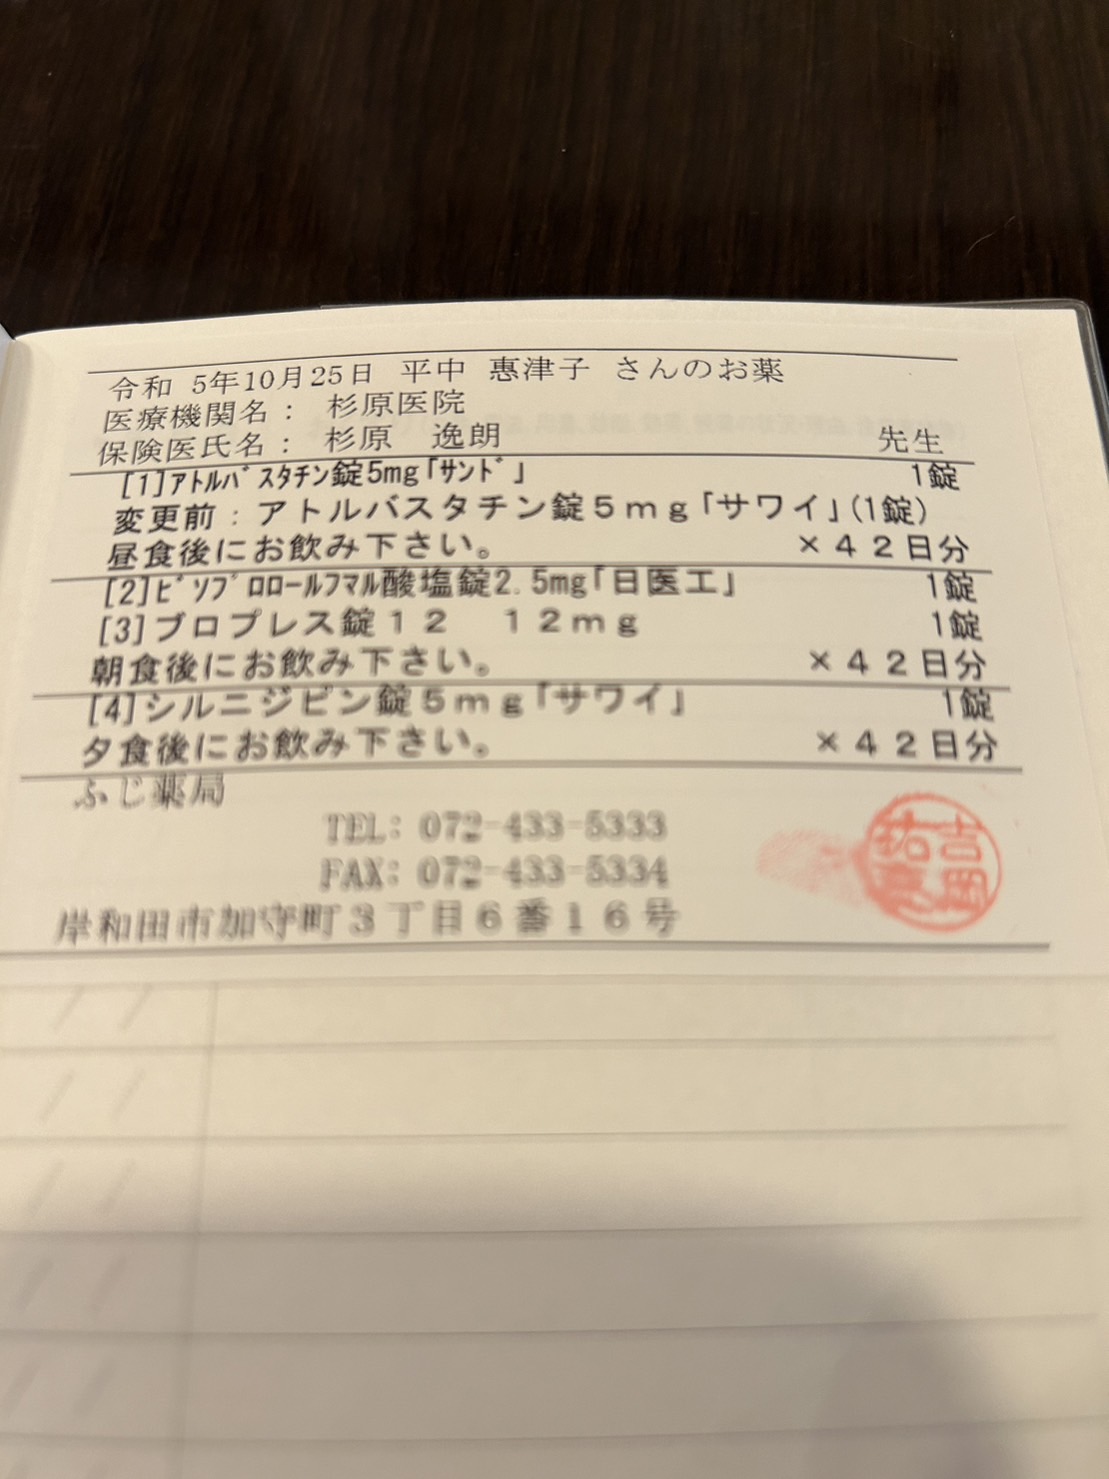 令和 5年10月25日 平中 惠津子 さんのお薬
医療機関名： 杉原医院
保険医氏名： 杉原 逸朗 先生
[1]ｱﾄﾙﾊﾞｽﾀﾁﾝ錠5mg「ｻﾝﾄﾞ」 1錠
変更前：アトルバスタチン錠５ｍｇ「サワイ」(1錠)
昼食後にお飲み下さい。 ×４２日分
[2]ﾋﾞｿﾌﾟﾛﾛｰﾙﾌﾏﾙ酸塩錠2.5mg「日医工」 1錠
[3]ブロプレス錠１２ １２ｍｇ 1錠
朝食後にお飲み下さい。 ×４２日分
[4]シルニジピン錠５ｍｇ「サワイ」 1錠
夕食後にお飲み下さい。 ×４２日分
ふじ薬局
TEL: 072-433-5333
FAX: 072-433-5334
岸和田市加守町３丁目６番１６号
吉岡